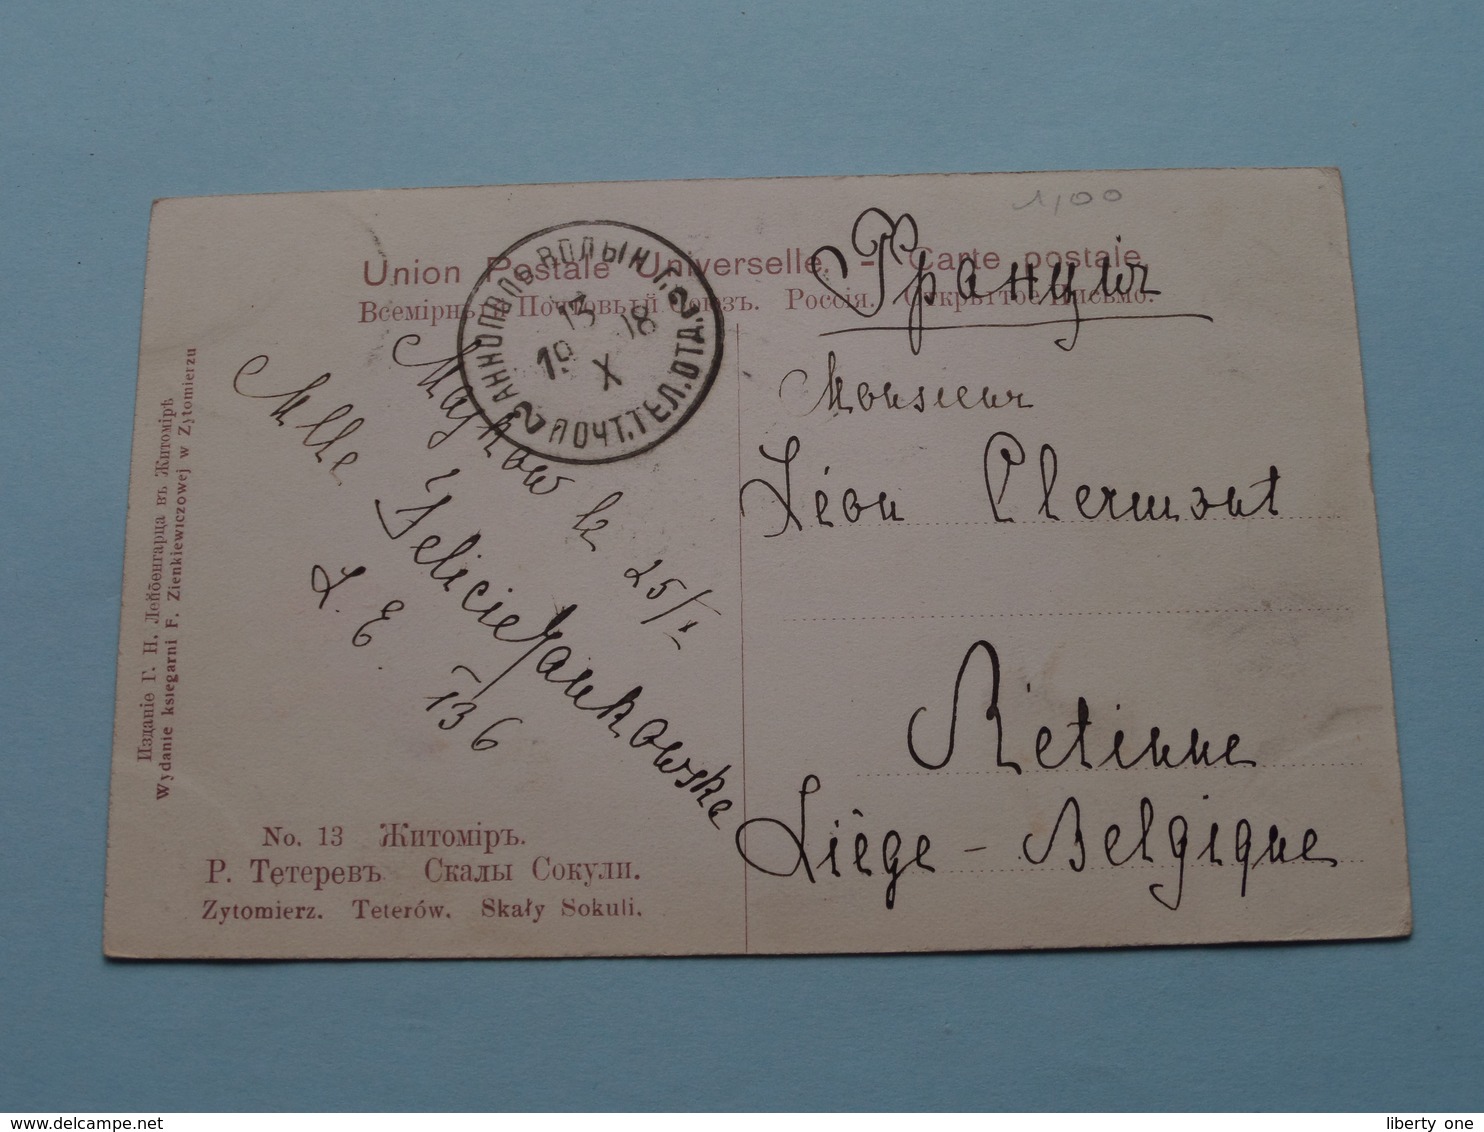 1,00
Union Postale Universelle. - Carte postale.
Всемірный Почтовый Союзъ. Россія. Открытое письмо.
Франція
АННОПОЛЬ ВОЛЫН. Г.
13
19 08
X
2 ПОЧТ.ТЕЛ.ОТД. 2
Monsieur
Léon Clermont
Retinne
Liège - Belgique
Majkow le 25/X
Mlle Felicie Jankowska
L. E. 136
Изданіе Г. Н. Лейбенгарца въ Житомірѣ
Wydanie księgarni F. Zienkiewiczowej w Zytomierzu
No. 13 Житоміръ.
Р. Тетеревъ Скалы Сокули.
Zytomierz. Teterów. Skały Sokuli.
liberty one